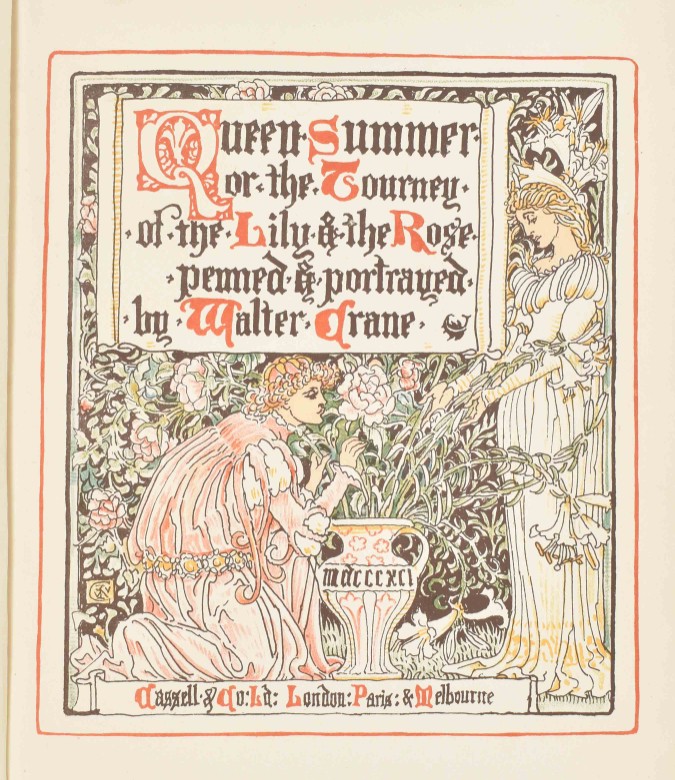 Queen·Summer·
or·the·Tourney·
·of·the·Lily·&·the·Rose·
·penned·&·portrayed·
·by·Walter·Crane·
mdcccxci
Cassell·&·Co:Ld: London:Paris:&Melbourne